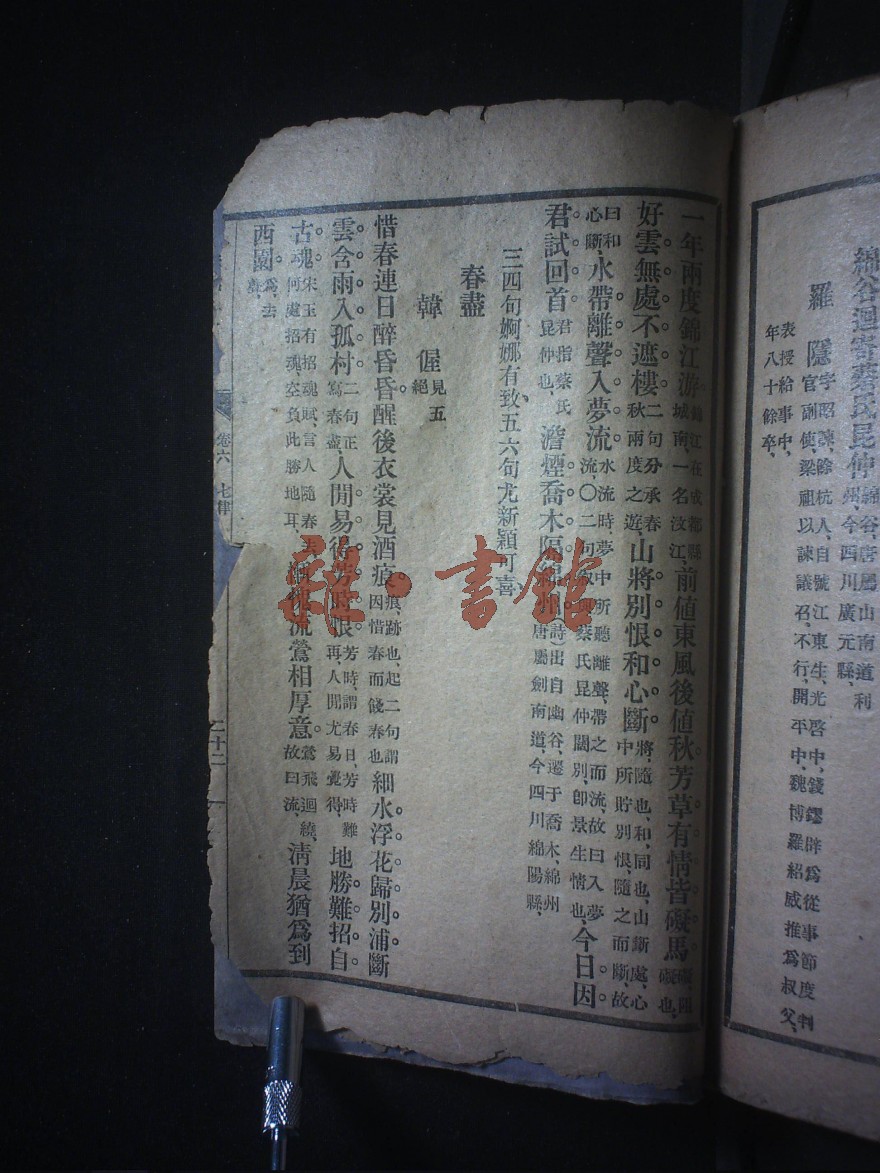 綿谷迴寄蔡氏昆仲綿谷、唐屬山南道利州、今四川廣元縣、
羅隱字昭諫、餘杭人、自號江東生、光啓中、錢鏐辟爲從事節度判官副使、梁祖以諫議召、不行、開平中、魏博羅紹威推爲叔父、
表授給事中、年八十餘卒、
一年兩度錦江游錦江在成都縣城南、一名汶江、前値東風後値秋。芳草有情皆礙馬礙、阻礙也、
好雲無處不遮樓二句分承春秋兩度之遊、山將別恨和心斷將、隨也、和、同也、山斷處、心中所貯別恨、隨之而斷、故
曰和心斷、水帶離聲入夢流水流時、夢中所聽離聲、帶之而流、故曰入夢流、〇二句敘與蔡氏昆仲闊別、卽景生情也、今日因
君試回首君指蔡氏昆仲也、澹煙喬木隔綿州詩出自幽谷、遷于喬木、綿州唐屬劍南道、今四川綿陽縣、
三四句婀娜有致五六句尤新穎可喜、
春盡
韓偓見五絕
惜春連日醉昏昏醒後衣裳見酒痕痕、跡也、起二句謂因惜春而餞春也細水浮花歸別浦斷
雲含雨入孤村二句正寫春盡、人閒易得芳時恨芳時、謂春日、芳時難再人閒尤易覺得、地勝難招自
古魂宋玉有招魂賦、言人隨春去、何處招魂、空負此勝地耳、慚愧流鶯相厚意鶯飛迴繞、故曰流、淸晨猶爲到
西園爲、去聲、
卷六 七律 二十二
雜·書館